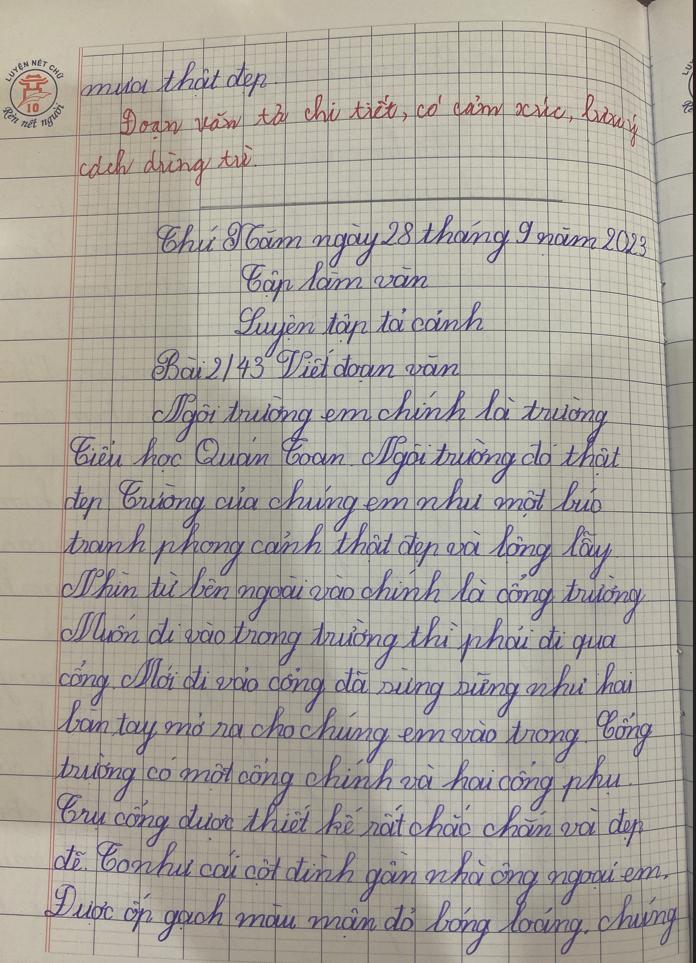 LUYỆN NÉT CHỮ
10
Rèn nét người
mưa thật đẹp.
Đoạn văn tả chi tiết, có cảm xúc, lưu ý
cách dùng từ.
Thứ Năm ngày 28 tháng 9 năm 2023
Tập làm văn
Luyện tập tả cảnh
Bài 2/43 Viết đoạn văn
Ngôi trường em chính là trường
Tiểu học Quán Toan. Ngôi trường đó thật
đẹp Trường của chúng em như một bức
tranh phong cảnh thật đẹp và lộng lẫy.
Nhìn từ bên ngoài vào chính là cổng trường
Muốn đi vào trong trường thì phải đi qua
cổng. Mới đi vào cổng đã sừng sững như hai
bàn tay mở ra cho chúng em vào trong. Cổng
trường có một cổng chính và hai cổng phụ.
Trụ cổng được thiết kế rất chắc chắn và đẹp
đẽ. To như cái cột đình gần nhà ông ngoại em.
Được ốp gạch màu mận đỏ bóng loáng, chúng